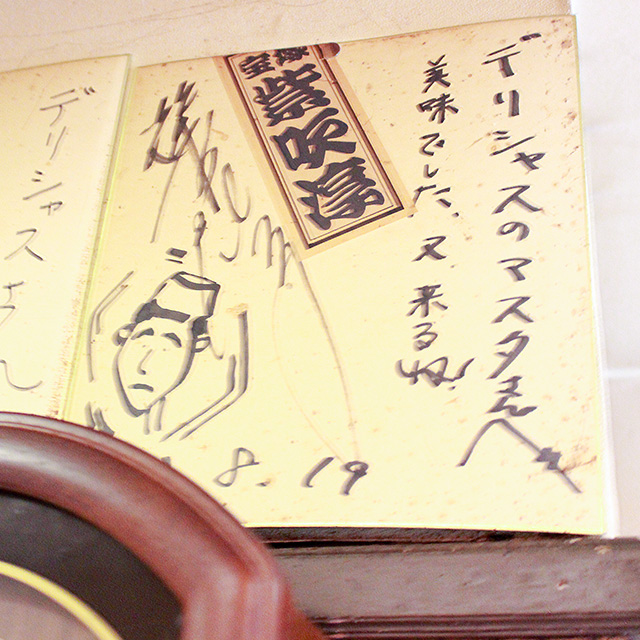 デリシャスのマスターさんへ
美味でした、又来るね!
紫吹淳
8.19
デリシャスさん